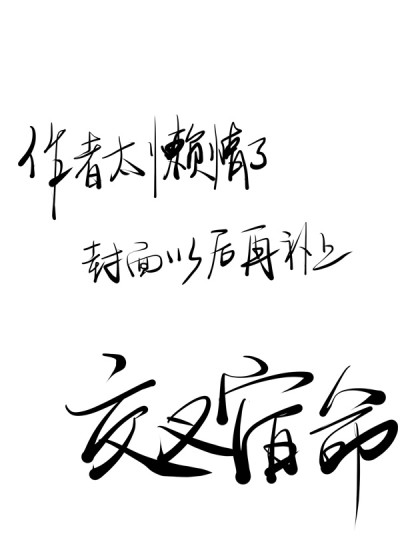 作者太懒惰了
封面以后再补上
交叉宿命